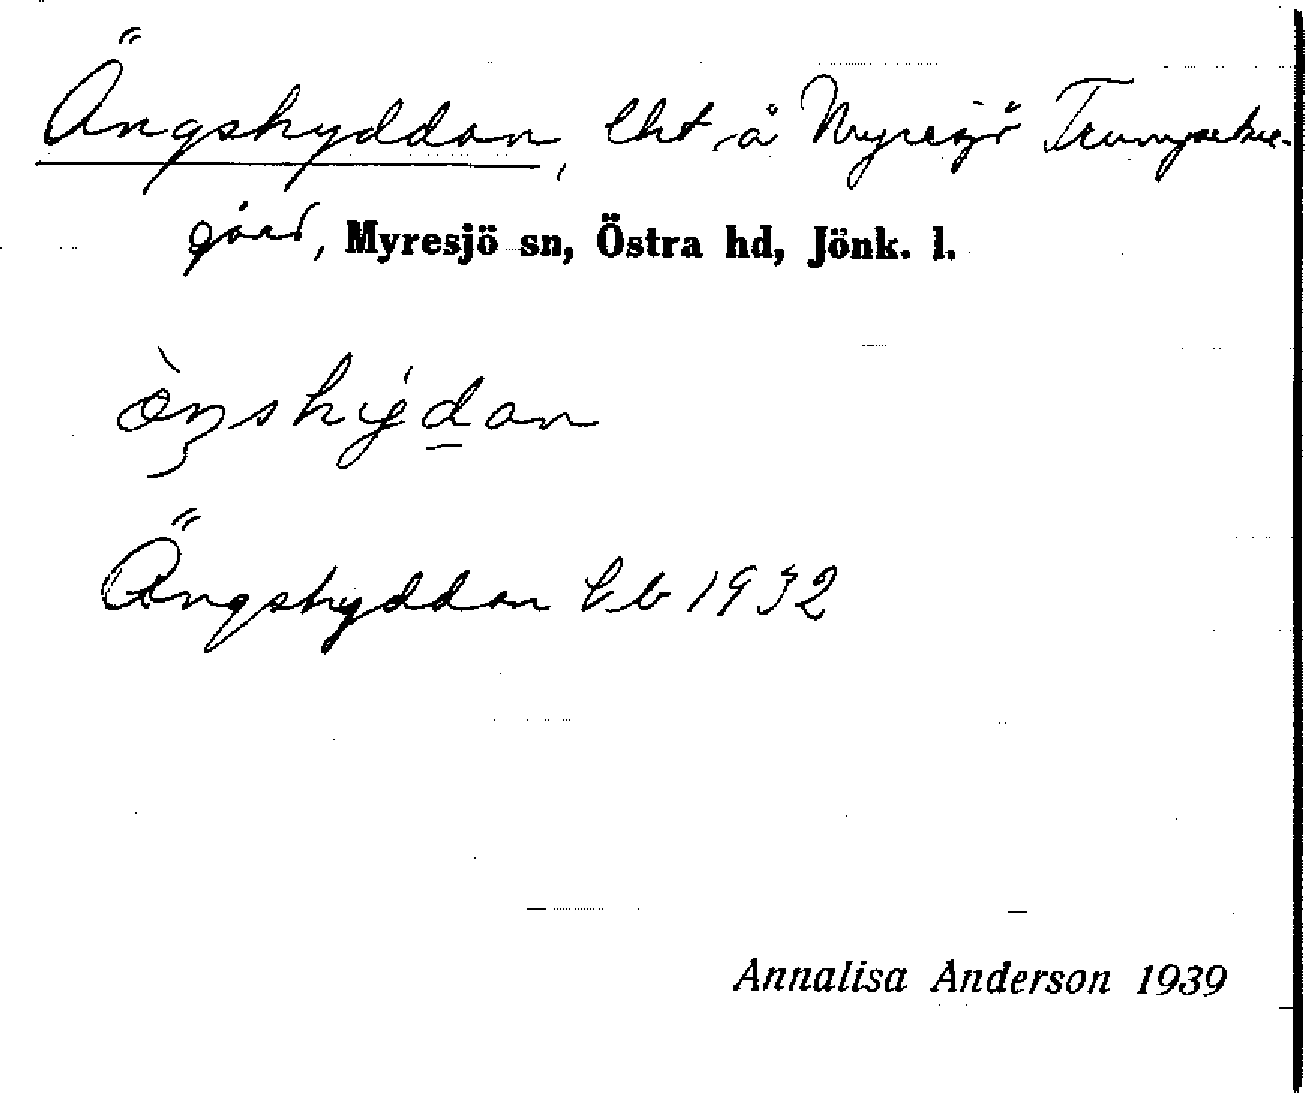 Ängshyddan, lht å Myresjö Trumpetare-
gård, Myresjö sn, Östra hd, Jönk. l.
Ängshyddan lb 1932
Annalisa Anderson 1939